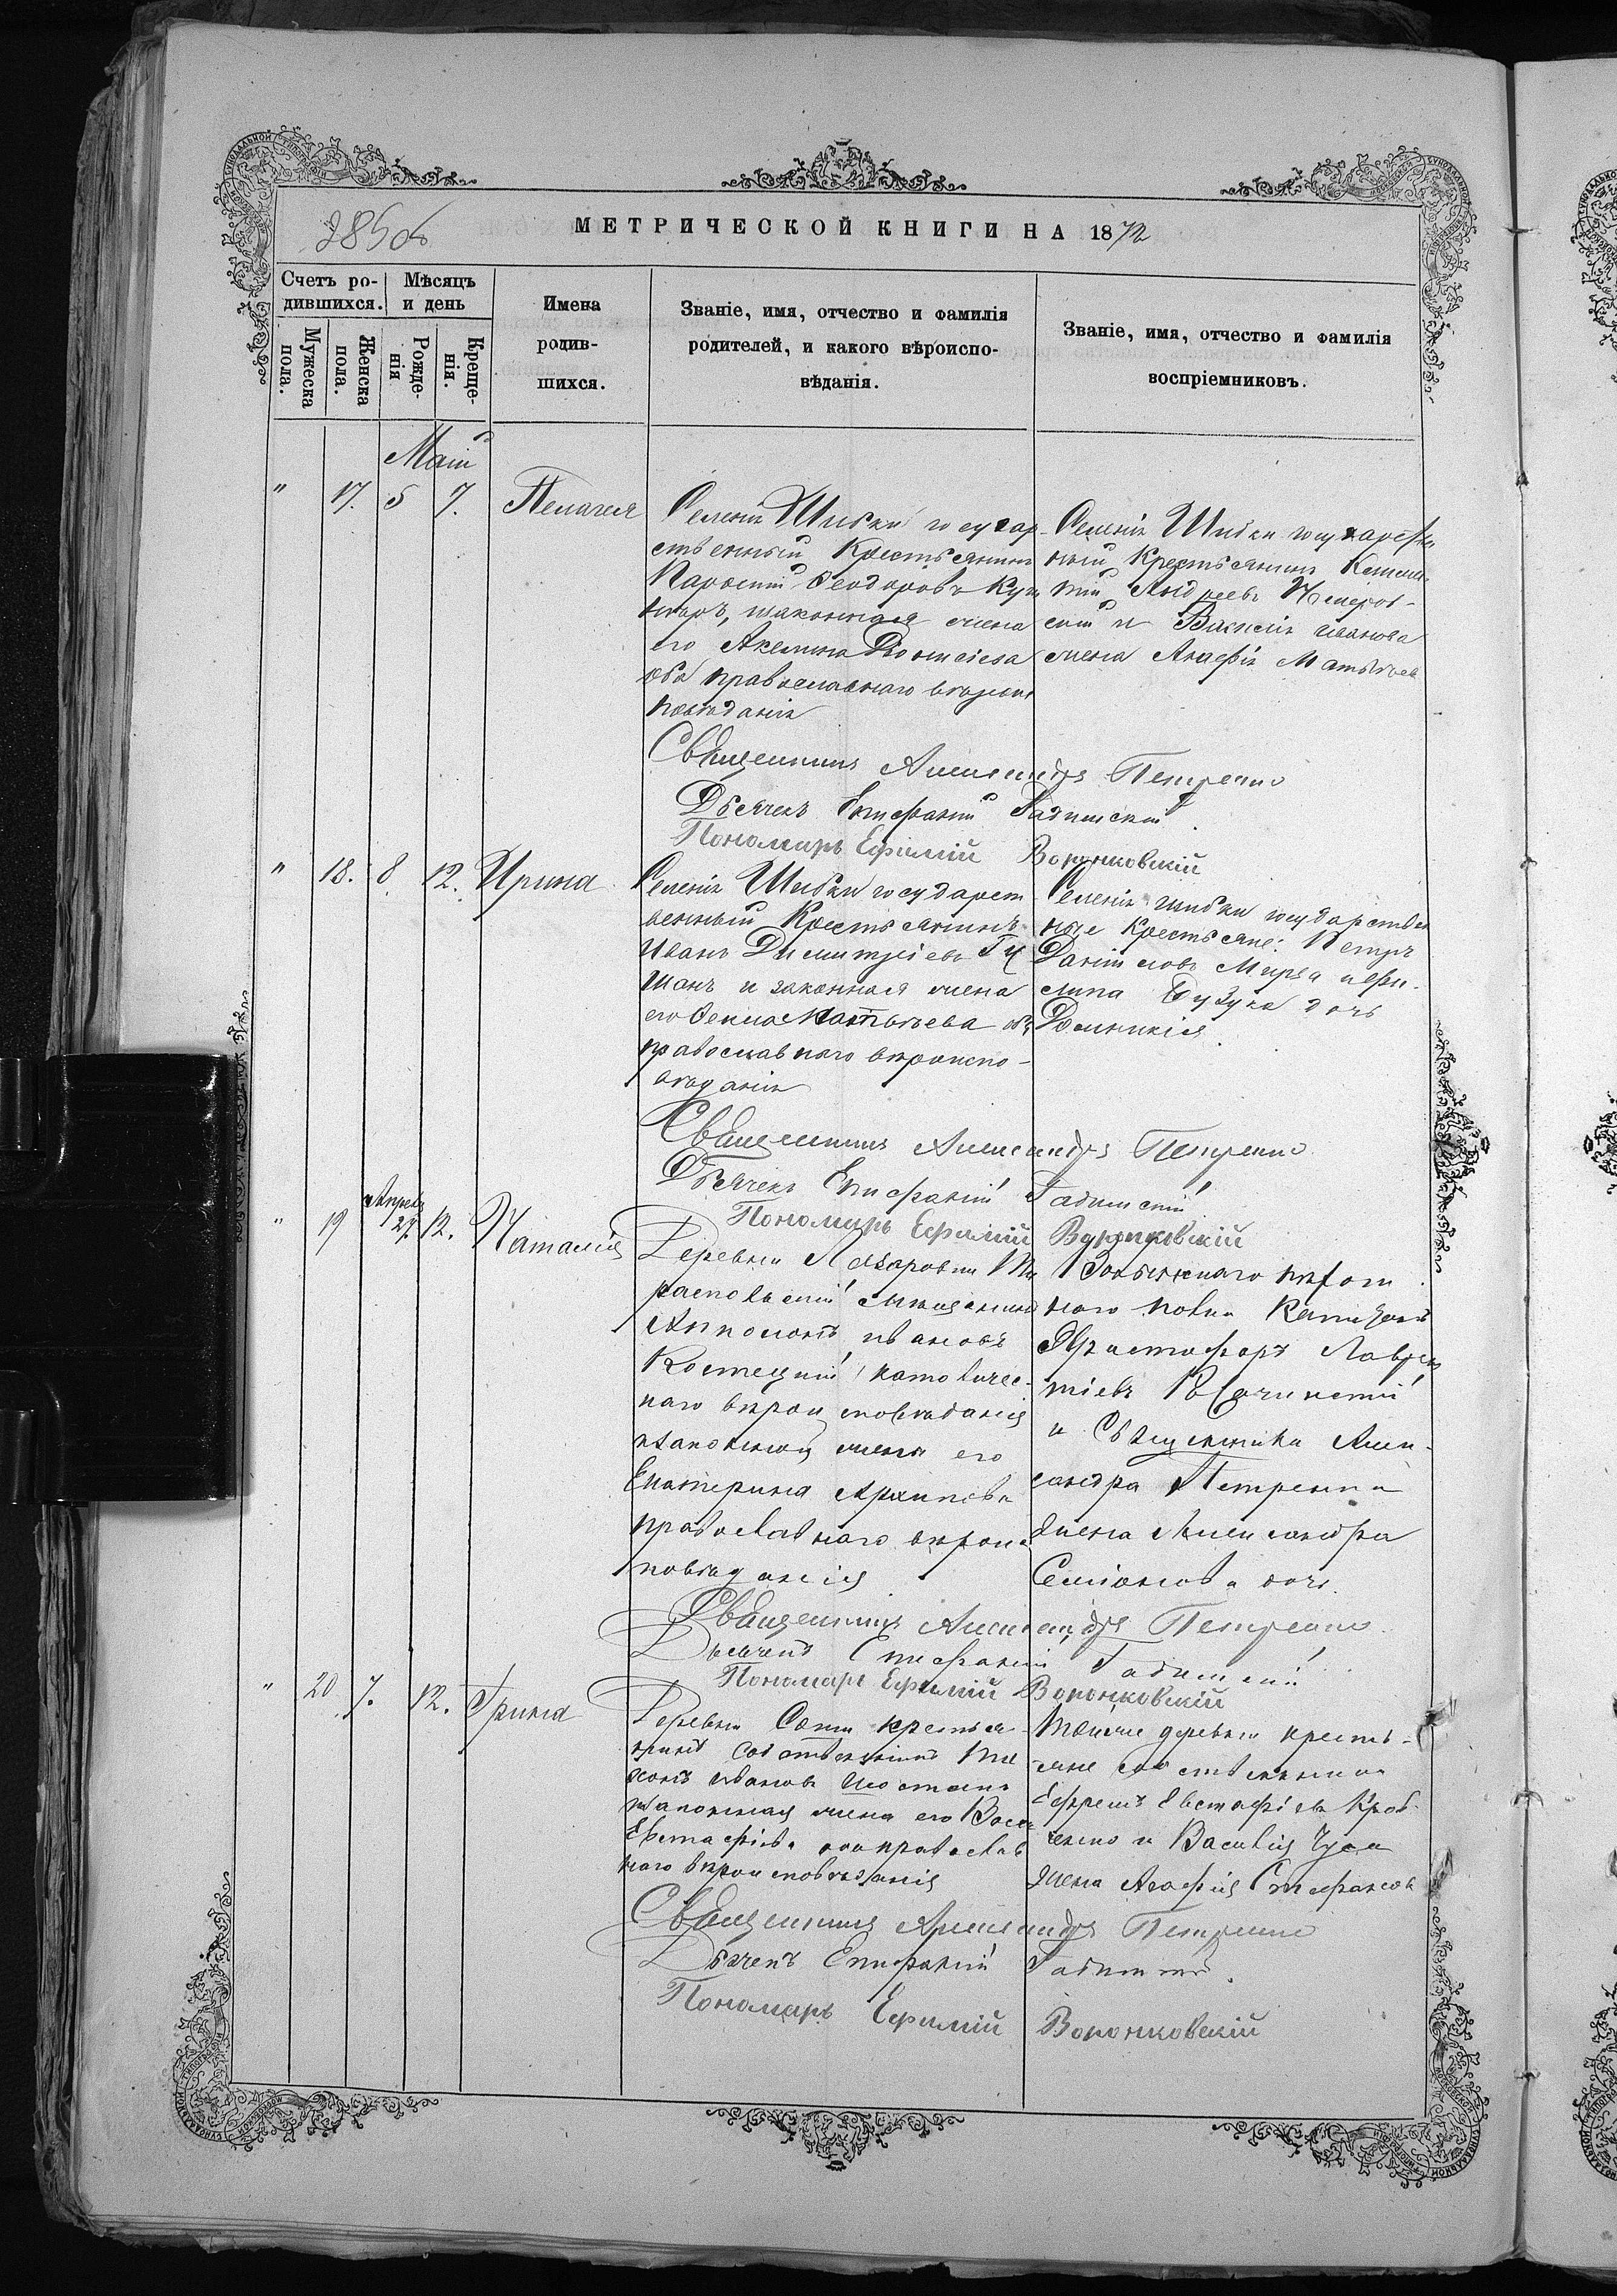 285об
МЕТРИЧЕСКОЙ КНИГИ НА 1872
Счетъ ро-
дившихся.
Мѣсяцъ
и день
Мужеска
пола.
Женска
пола.
Рожде-
нія
Креще-
нія.
Имена
родив-
шихся.
Званіе, имя, отчество и фамилія
родителей, и какого вѣроиспо-
вѣданія.
Званіе, имя, отчество и фамилія
воспріемниковъ.
Май
" 17. 5 7. Пелагея
Селенія Шибки государ-
ственный Крестьянинъ
Феодоровъ
законная жена
его Акелина Діонисіева
оба православнаго вѣроис
повѣданія
Селенія Шибки государствен
ный Крестьянинъ
Андреевъ
и Василія Иванова
жена Агафія Матвѣева
Священникъ Александръ Петренко
Дьячекъ Епифаній Гадинскій
Пономарь Ефимій Воронковскій
" 18. 8. 12. Ирина
Селенія Шибки государст
венный Крестьянинъ
Иванъ Димитріевъ Гу
шанъ и законная жена
его Фекла Матвѣева оба
православнаго вѣроиспо-
вѣданія
Селенія Шибки государствен
ные Крестьяне: Петръ
Даніиловъ Мирза и Фи-
липа Бузука дочь
Домникія.
Священникъ Александръ Петренко
Дьячекъ Епифаній Гадинскій
Пономарь Ефимій Воронковскій
" 19 Апрѣля 27. 12. Наталія
Деревни Лазаровки Ти
распольскій мѣщанинъ
Ивановъ
Костецкій католичес-
каго вѣроисповѣданія
и законная жена его
Екатерина Архипова
православнаго вѣроис
повѣданія
Волынскаго пѣхот
наго полка Капитанъ
Христофоръ Лаврен
тіевъ
и Священника Алек-
сандра Петренка
жена Александра
Симіонова дочь.
Священникъ Александръ Петренко
Дьячекъ Епифаній Гадинскій
Пономарь Ефимій Воронковскій
" 20 7. 12. Ирина
Деревни крестья
нинъ собственникъ Ти
хонъ Ивановъ Шостакъ
и законная жена его Васса
Евстафіева оба православ
наго вѣроисповѣданія
Той же деревни кресть-
яне собственники
Ефремъ Евстафіевъ Крав-
ченко и Василія Гуса
жена Агафія Стефанова
Священникъ Александръ Петренко
Дьячекъ Епифаній Гадинскій.
Пономарь Ефимій Воронковскій